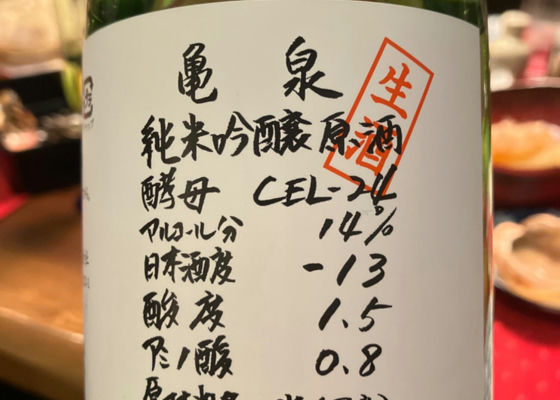 亀泉
生酒
純米吟醸原酒
酵母 CEL-24
アルコール分 14%
日本酒度 -13
酸度 1.5
アミノ酸 0.8